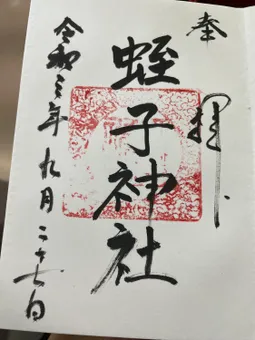 奉拝
蛭子神社
令和三年九月二十六日